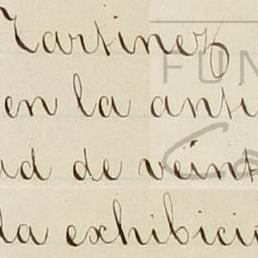 Martinez
en la anti
ud de veint
la exhibició
FUN